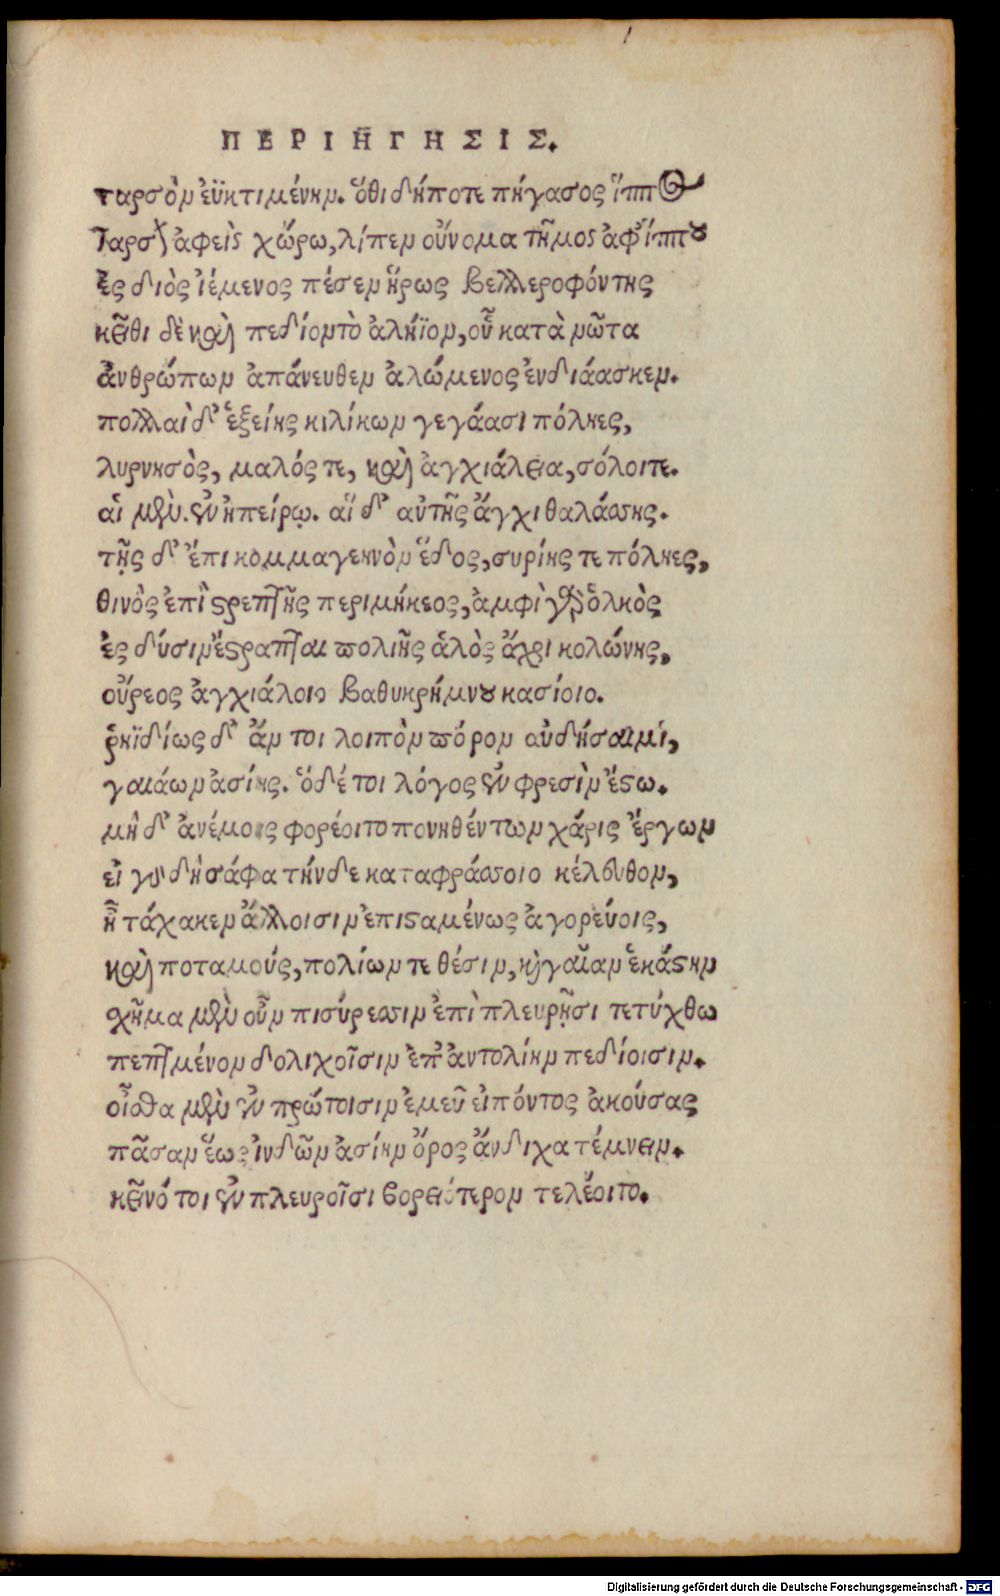 ΠΕΡΙΗΓΗΣΙΣ.
ταρσὸν ἐϋκτιμένην. ὅθι δήποτε πήγασος ἵππος
Ταρσὸν ἀφεὶς χώρῳ, λίπεν οὔνομα τῆμος ἀφ' ἵππου
ἐς διὸς ἱέμενος πέσεν ἥρως βελλεροφόντης
κεῖθι δὲ καὶ πεδίον τὸ ἀλήϊον, οὗ κατὰ νῶτα
ἀνθρώπων ἀπάνευθεν ἀλώμενος ἐνδιάασκεν.
πολλαὶ δ' ἑξείης κιλίκων γεγάασι πόληες,
λυρνησὸς, μαλός τε, καὶ ἀγχιάλεια, σόλοι τε.
αἱ μὲν. ἐν ἠπείρῳ. αἵ δ' αὐτῆς ἄγχι θαλάσσης.
τῇς δ' ἔπι κομμαγεηνὸν ἕδος, συρίης τε πόληες,
θινὸς ἐπὶ στρεπτῆς περιμήκεος, ἀμφὶ γὰρ ὁλκὸς
ἐς δύσιν ἔστραπται πολιῆς ἁλὸς ἄχρι κολώνης,
οὔρεος ἀγχιάλοιο βαθυκρήμνου κασίοιο.
ῥηϊδίως δ' ἄν τοι λοιπὸν πόρον αὐδήσαιμί,
γαιάων ἀσίης. ὁ δέ τοι λόγος ἐν φρεσὶν ἔστω.
μὴ δ' ἀνέμοις φορέοιτο πονηθέντων χάρις ἔργων
εἰ γὰρ δὴ σάφα τήνδε καταφράσσοιο κέλευθον,
ἦ τάχα κεν ἄλλοισιν ἐπισταμένως ἀγορεύοις,
καὶ ποταμούς, πολίων τε θέσιν, καὶ γαῖαν ἑκάστην
σχῆμα μὲν οὖν πισύρεσσιν ἐπὶ πλευρῇσι τετύχθω
πεπταμένον δολιχοῖσιν ἐπ' ἀντολίην πεδίοισιν.
οἶσθα μὲν ἐν πρώτοισιν ἐμεῦ εἰπόντος ἀκούσας
πᾶσαν ἕως ἰνδῶν ἀσίην ὄρος ἄνδιχα τέμνειν.
κεῖνό τοι ἐν πλευροῖσι βορειότερον τελέοιτο.
Digitalisierung gefördert durch die Deutsche Forschungsgemeinschaft - DFG